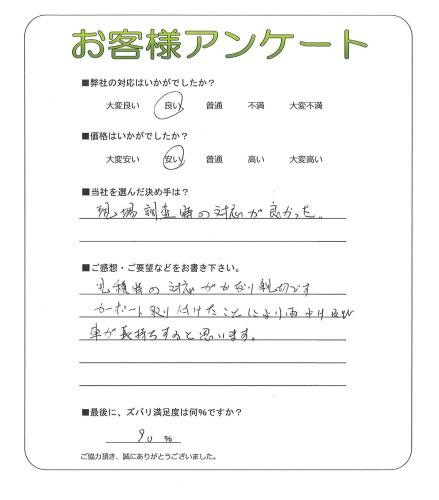 お客様アンケート
■弊社の対応はいかがでしたか？
大変良い 良い 普通 不満 大変不満
■価格はいかがでしたか？
大変安い 安い 普通 高い 大変高い
■当社を選んだ決め手は？
現場調査時の対応が良かった。
■ご感想・ご要望などをお書き下さい。
見積時の対応がかなり親切です
カーポート取り付けたことにより雨よけ
車が長持ちすると思います。
■最後に、ズバリ満足度は何%ですか？
90 %
ご協力頂き、誠にありがとうございました。